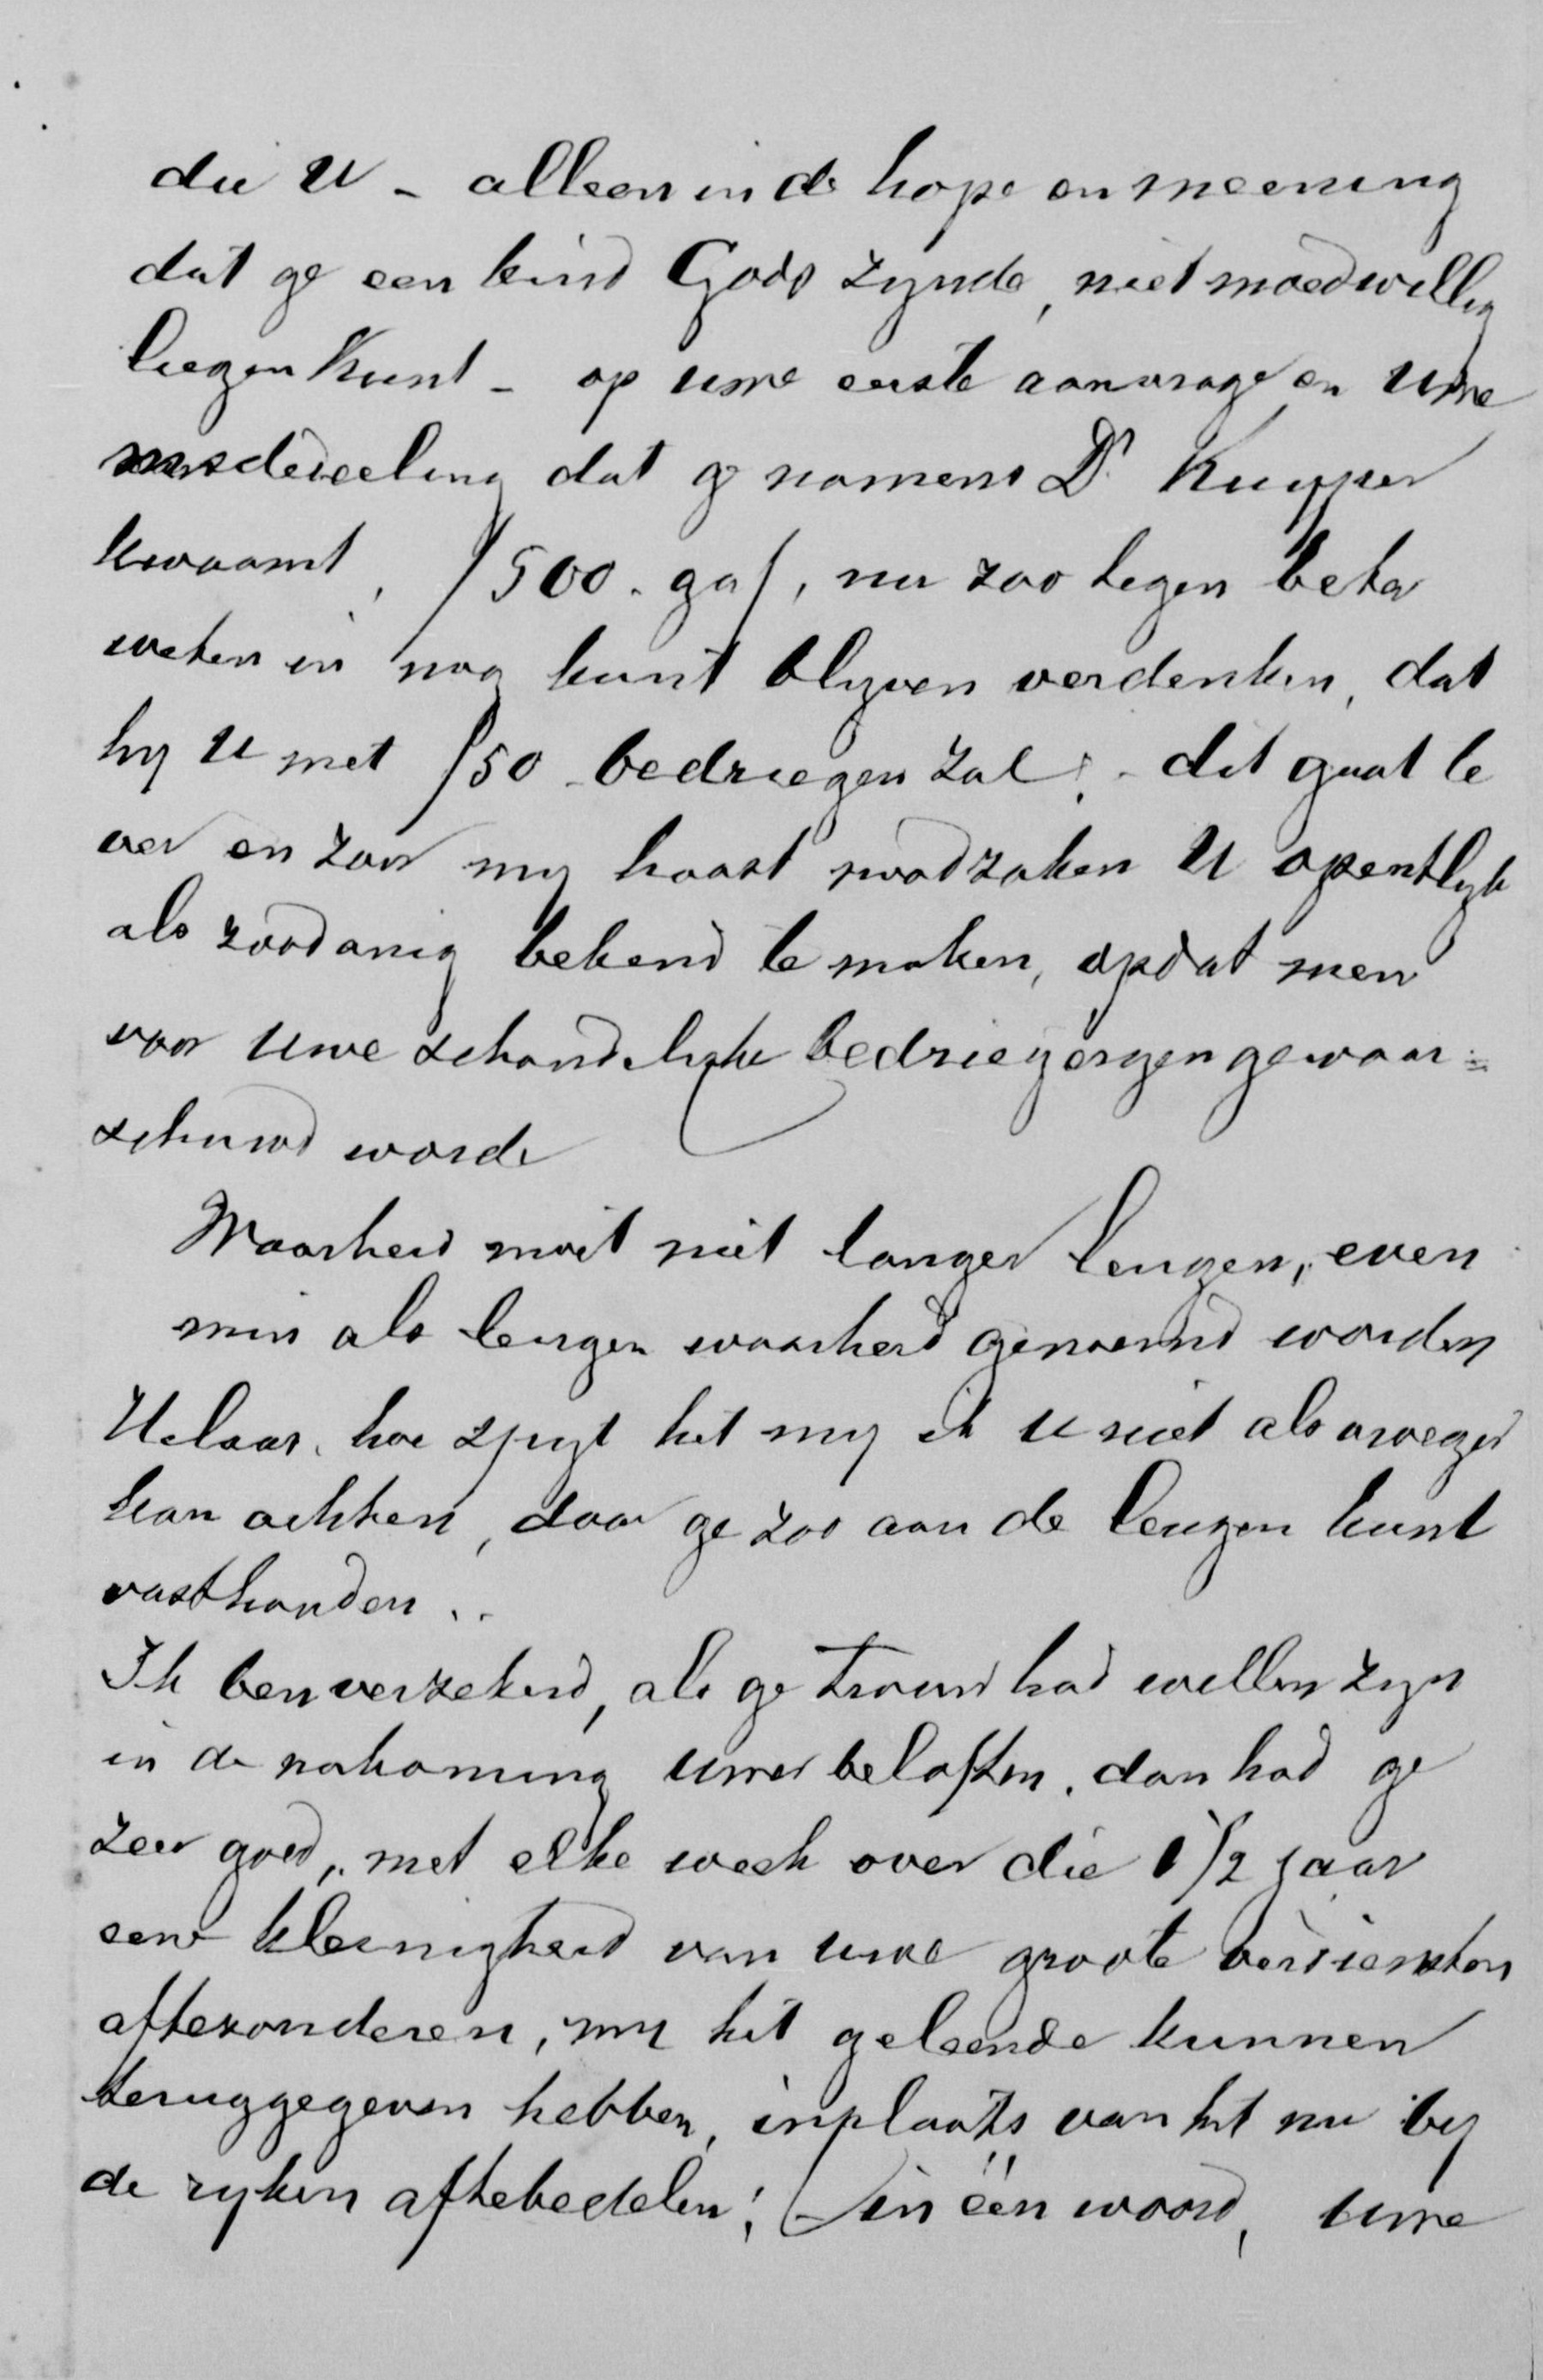 die U - alleen in de hope en meening
dat ge een kind Gods zynde, niet moedwillig
liegen kunt - op uwe eerste aanvrage en uwe
mededeeling dat ge namens Dr Kuyper
kwaamt, ƒ500.- gaf, nu zoo tegen beter
weten in nog kunt blyven verdenken, dat
hy U met ƒ50 - bedriegen zal; - dit gaat te
ver en zou my haast noodzaken U opentlyk
als zoodanig bekend te maken, opdat men
voor uwe schandelyke bedriegeryen gewaar=
schuwd worde
Waarheid moet niet langer leugen, even
min als leugen waarheid genoemd worden
Helaas, hoe spyt het my ik U niet als broeder
kan achten, daar ge zoo aan de leugen kunt
vasthouden ..
Ik ben verzekerd, als ge trouw had willen zyn
in de nakoming uwer beloften, dan had ge
zeer goed, met elke week over die 1 1/2 jaar
eene kleinigheid van uwe groote verdiensten
aftezonderen, my het geleende kunnen
teruggegeven hebben, inplaats van het nu by
de ryken aftebedelen; - in één woord, uwe